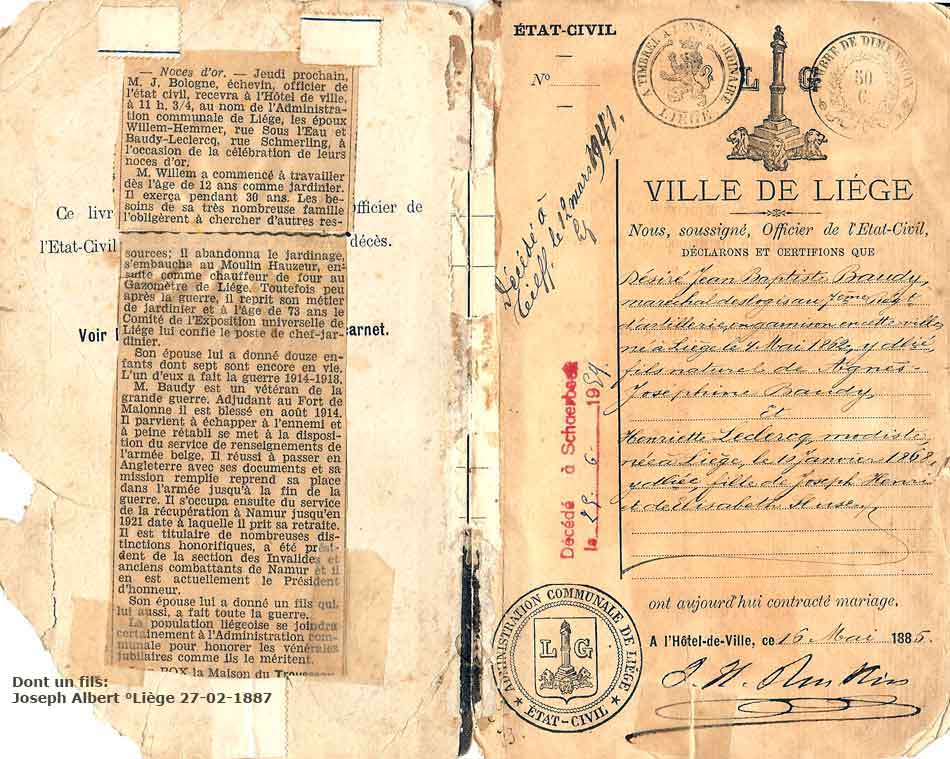 — Noces d'or. — Jeudi prochain,
M. J. Bologne, échevin, officier de
l'état civil, recevra à l'Hôtel de ville,
à 11 h. 3/4, au nom de l'Administra-
tion communale de Liége, les époux
Willem-Hemmer, rue Sous l'Eau et
Baudy-Leclercq, rue Schmerling, à
l'occasion de la célébration de leurs
noces d'or.
M. Willem a commencé à travailler
dès l'âge de 12 ans comme jardinier.
Il exerça pendant 30 ans. Les be-
soins de sa très nombreuse famille
l'obligèrent à chercher d'autres res-
Ce livr
fficier de
l'Etat-Civil
décès.
sources; il abandonna le jardinage,
s'embaucha au Moulin Hauzeur, en-
suite comme chauffeur de four au
Gazomètre de Liége. Toutefois peu
après la guerre, il reprit son métier
de jardinier et à l'âge de 73 ans le
Comité de l'Exposition universelle de
Liége lui confie le poste de chef-jar-
dinier.
Voir
carnet.
Son épouse lui a donné douze en-
fants dont sept sont encore en vie.
L'un d'eux a fait la guerre 1914-1918.
M. Baudy est un vétéran de la
grande guerre. Adjudant au Fort de
Malonne il est blessé en août 1914.
Il parvient à échapper à l'ennemi et
à peine rétabli se met à la disposi-
tion du service de renseignements de
l'armée belge. Il réussi à passer en
Angleterre avec ses documents et sa
mission remplie reprend sa place
dans l'armée jusqu'à la fin de la
guerre. Il s'occupa ensuite du service
de la récupération à Namur jusqu'en
1921 date à laquelle il prit sa retraite.
Il est titulaire de nombreuses dis-
tinctions honorifiques, a été prési-
dent de la section des Invalides et
anciens combattants de Namur et il
en est actuellement le Président
d'honneur.
Son épouse lui a donné un fils qui,
lui aussi, a fait toute la guerre.
La population liégeoise se joindra
certainement à l'Administration com-
munale pour honorer les vénérables
jubilaires comme ils le méritent.
BOX la Maison du Trousseau
Dont un fils:
Joseph Albert °Liège 27-02-1887
ÉTAT-CIVIL
N°
A TIMBRE A L'EXTRAORDINAIRE
LIÉGE
L G
TIMBRE DE DIMENSION
50
C.
VILLE DE LIÉGE
Nous, soussigné, Officier de l'Etat-Civil,
DÉCLARONS ET CERTIFIONS QUE
Désiré Jean Baptiste Baudy,
maréchal des logis au 7eme regt
d'artillerie, en garnison en ville,
né à Liége le 4 Mai 1862, y dlié,
fils naturel de Agnès-
Josephine Baudy,
Et
Henriette Leclercq, modiste
née à Liége, le 1 Janvier 1868,
y dliée, fille de Joseph Henri
et de Elisabeth
ont aujourd'hui contracté mariage.
A l'Hôtel-de-Ville, ce 16 Mai 1886.
Décédé à
le 12 mars 1941.
Décédé à Schaerbeek
la 25. 6 1954.
ADMINISTRATION COMMUNALE DE LIÉGE
L G
ÉTAT-CIVIL